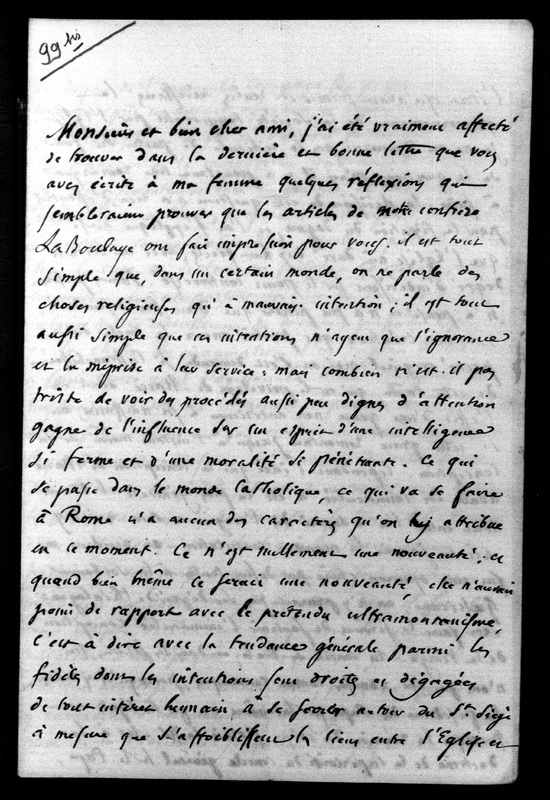 99 bis
Monsieur et bien cher ami, j'ai été vraiment affecté
de trouver dans la dernière et bonne lettre que vous
avez écrite à ma femme quelques réflexions qui
sembleraient prouver que les articles de notre confrère
LaBoulaye ont fait impression pour vous. il est tout
simple que, dans un certain monde, on ne parle des
choses religieuses qu'à mauvaise intention ; il est tout
aussi simple que ces intentions n'ayent que l'ignorance
et la méprise à leur service : mais combien n'est-il pas
triste de voir des procédés aussi peu dignes d'attention
gagner de l'influence sur un esprit d'une intelligence
si ferme et d'une moralité si pénétrante. Ce qui
se passe dans le monde Catholique, ce qui va se faire
à Rome n'a aucun des caractères qu'on lui attribue
en ce moment. Ce n'est nullement une nouveauté ; et
quand bien même ce serait une nouveauté, elle n'aurait
point de rapport avec le prétendu ultramontanisme,
c'est à dire avec la tendance générale parmi les
fidèles dont les intentions sont droites et dégagées
de tout intérêt humain à se serrer autour du St. Siège
à mesure que s'affoiblissent les liens entre l'Eglise et